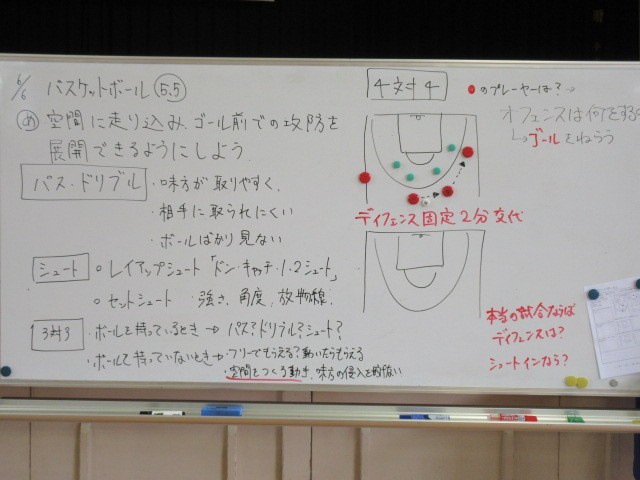 6/6 バスケットボール 5.5
め 空間に走り込み、ゴール前での攻防を
展開できるようにしよう
パス・ドリブル ・味方が取りやすく、
・相手に取られにくい
・ボールばかり見ない
シュート ○レイアップシュート「ドン・キャッチ・1・2シュート」
○セットシュート 強さ、角度、放物線、
3対3 ・ボールを持っているとき→パス?ドリブル?シュート?
・ボールを持っていないとき→・フリーでもらえる?動いたらもらえる
・空間をつくる動き、味方の侵入を
4対4
のプレーヤーは?→
オフェンスは何をする
→ゴールをねらう
ディフェンス固定2分交代
本当の試合ならば
ディフェンスは?
シュートインなら?